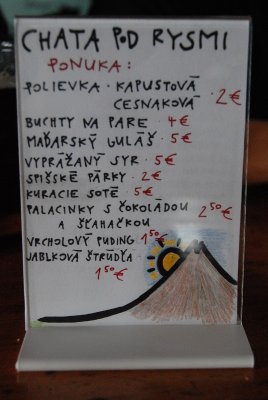 CHATA POD RYSMI
PONUKA:
POLIEVKA · KAPUSTOVÁ
CESNAKOVÁ · 2€
BUCHTY NA PARE · 4€
MAĎARSKÝ GULÁŠ · 5€
VYPRÁŽANÝ SYR · 5€
SPIŠSKÉ PÁRKY · 2€
KURACIE SOTÉ · 5€
PALACINKY S ČOKOLÁDOU
A ŠĽAHAČKOU 2⁵⁰€
VRCHOLOVÝ PUDING 1⁵⁰€
JABLKOVÁ ŠTRÚDĽA
1⁵⁰€